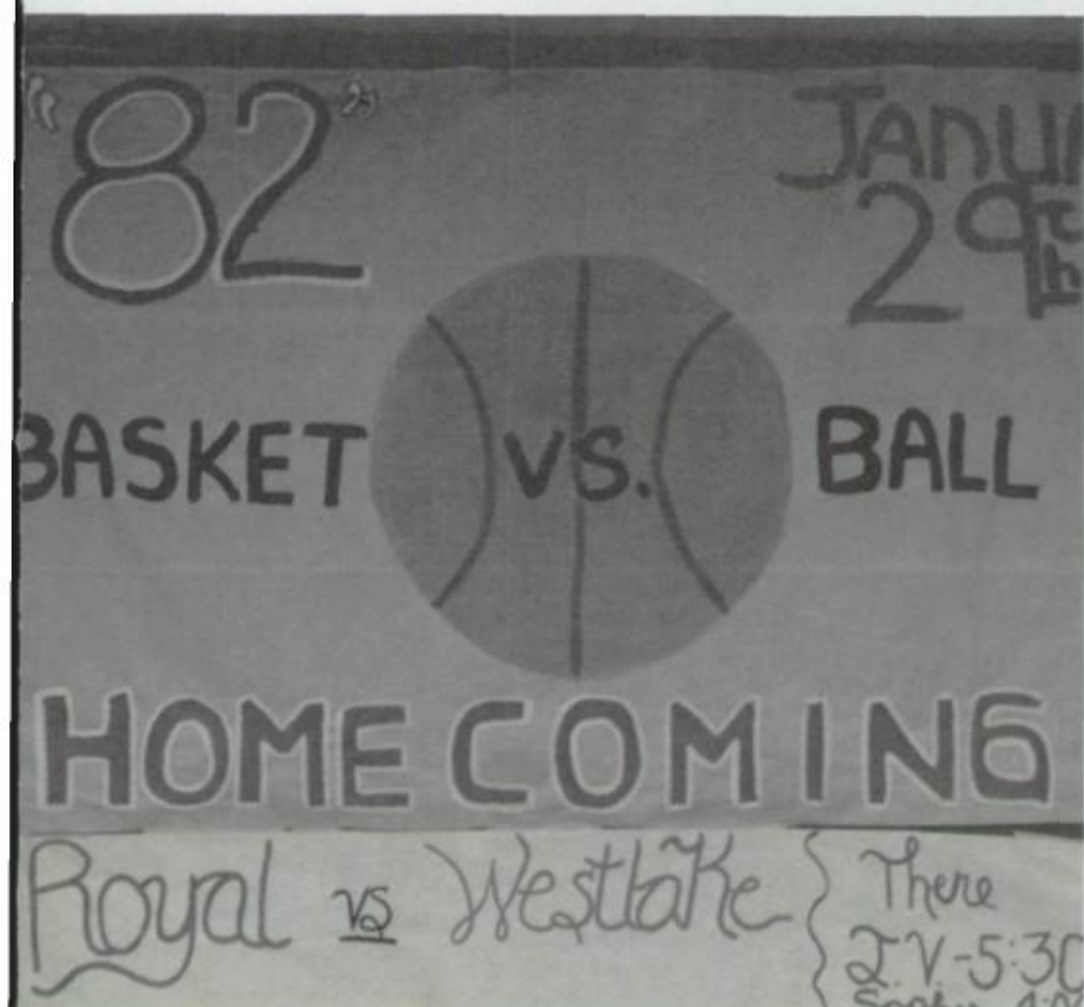 "82"
JANUA
29th
BASKET VS. BALL
HOMECOMING
Royal vs Westlake { There
J.V-5:30